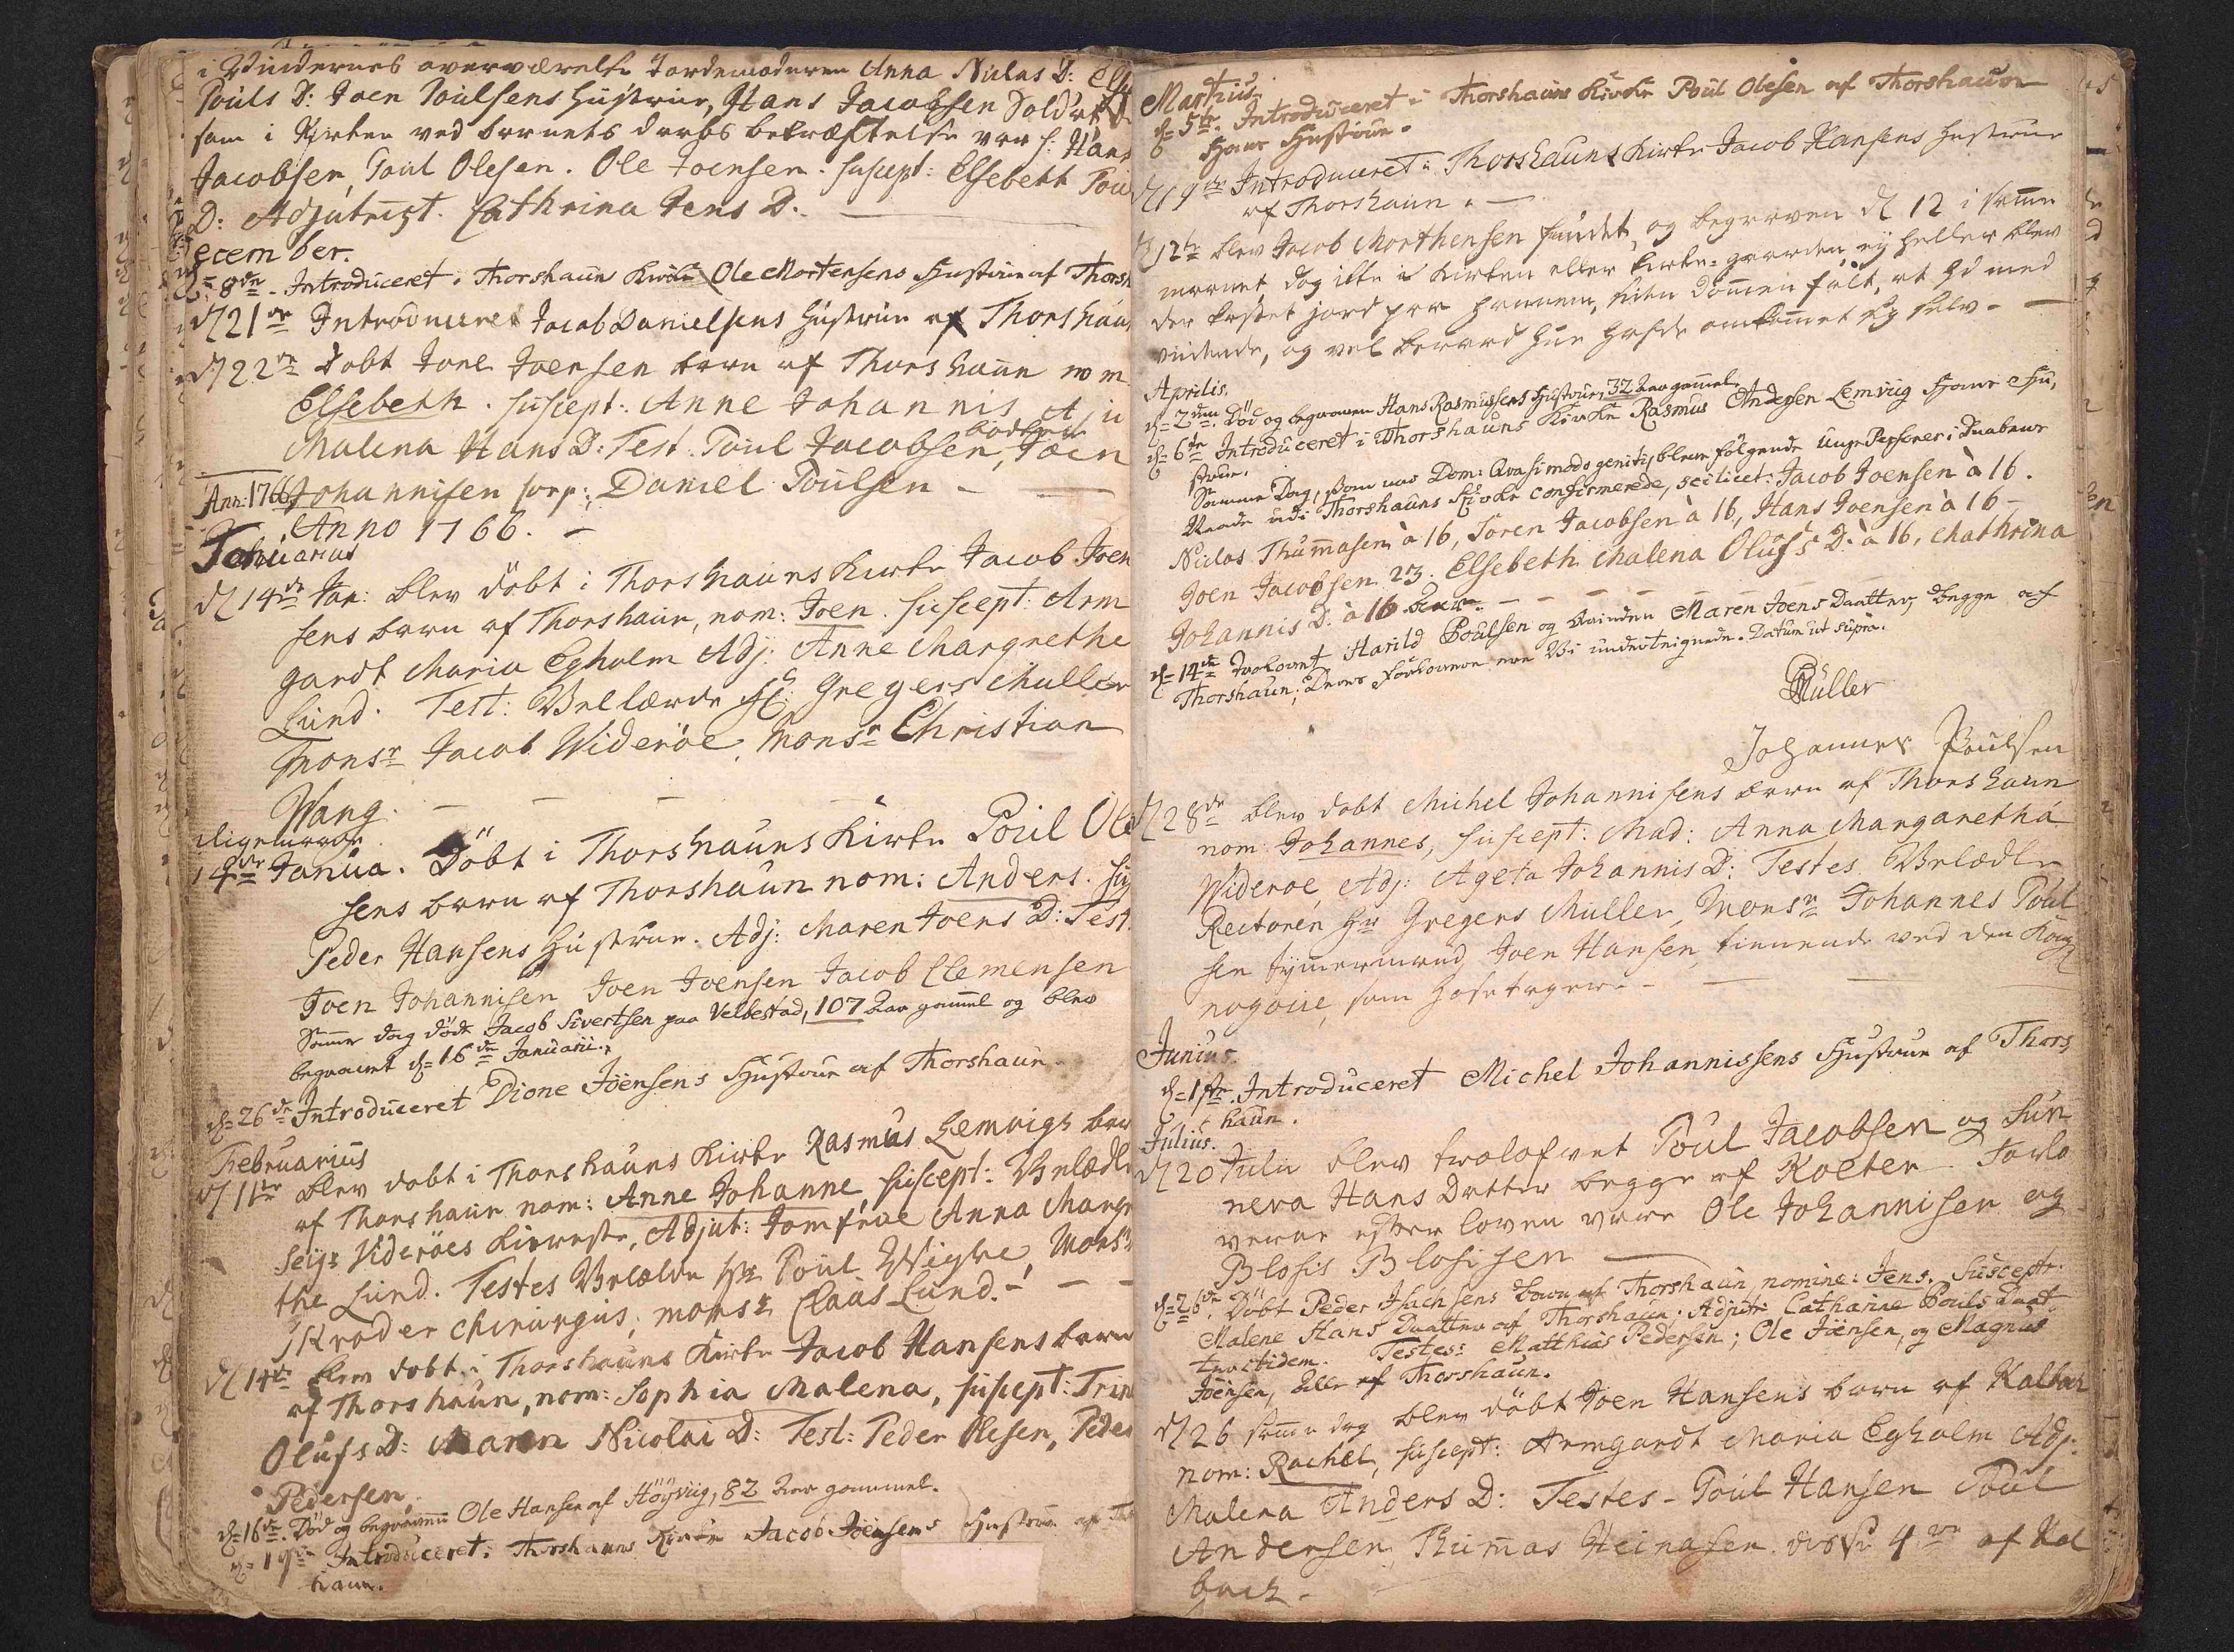 i Vindernes overværelse Jordemoderen Anna Niclas D: Else
Pouls D: Joen Poulsens Hustrue, Hans Jacobsen Soldat
som i Kirken ved barnets daabs bekræftelse var s: Hans
Jacobsen, Poul Olesen. Ole Joensen. suscept: Elsebeth Pou
D: Adjutrixt. Cathrina Jens D.
December.
d= 8de. Introduceret i Thorshauns Kirke Ole Mortensens Hustrue af Thorsh
d 21de Introduceret Jacob Danielsens Hustrue af Thorshau
d 22de Dobt Joen Joensen barn af Thorshaun nom
Elsebeth. suscept: Anne Johannis
Malena Hans D: Test: Poul Jacobsen, Joen
Johannisen corp: Daniel Poulsen
Ann: 1766
Anno 1766.
Januarius
d 14de Jan: blev döbt i Thorshauns Kirke Jacob Joen
sens barn af Thorshaun, nom: Joen. suscept: Arm
gardt Maria Egholm Adj: Anne Margrethe
Lund. Test: Vellærde Hr: Gregers Muller
Monsr Jacob Wideröe, Monsr Christian
Wang.
14de Janua. Döbt i Thorshauns Kirke Poul Ole
sens barn af Thorshaun nom: Anders. su
Peder Hansens Hustrue. Adj: Maren Joens D: Test.
Joen Johannisen Joen Joensen Jacob Clemensen
Samme dag döde Jacob Sivertsen paa Velbestad, 107 Aar gammel og blev
begravet d= 16de Januarii.
d= 26de Introduceret Dione Jöensens Hustrue af Thorshaun.
Februarius
d 11te blev dobt i Thorshauns Kirke Rasmus Lemvigs bar
af Thorshaun nom: Anne Johanne, suscept: Velædle
Seigr Videröes Kiereste, Adjut: Jomfrue Anna Margre
the Lund. Testes Velælde Hr Poul Weyhe, Monsr
Skrøder chirurgus, monsr Claas Lund.
d 14de blev dobt i Thorshauns Kirke Jacob Hansens barn
af Thorshaun, nom: Sophia Malena, suscept: Trin
Olufs D: Maren Nicolai D: Test: Peder Olesen, Peder
Pedersen,
d= 16de. Död og begraven Ole Hansen af Höyviig, 82 Aar gammel.
d= 19de Introduceret i Thorshauns Kirke Jacob Jöensens Hustrue af Thors
haun.
Martius
d= 5te. Introduceret i Thorshauns Kirke Poul Olesen af Thorshaun
Hans Hustrue.
d 19de Introduceret i Thorshauns Kirke Jacob Hansens Hustrue
af Thorshaun.
d 12te blev Jacob Morthensen fundet, og begraven d 12 i samme
maanet dog ikke i Kirken eller Kirke-gaarden, ey heller blev
der kastet jord paa hannem, siden Dommen falt, at hd med
vidende, og vel beraad hue hafde omkomet sig selv.
Aprilis.
d= 2den Död og begraven Hans Rasmussens Hustrue, 32 Aar gammel.
d= 6te Introduceret i Thorshauns Kirke Rasmus Andersen Lemviig Hans Hu,
strue.
Samme Dag, som var Dom: Qvasimodo geniti, bleve fölgende Unge Personer i Daabens
Naade udi Thorshauns Kirke confirmerede, scilicet: Jacob Joensen à 16.
Niclas Thummasen à 16, Sören Jacobsen à 16, Hans Joensen à 16
Joen Jacobsen 23. Elsebeth Malena Olufs D. à 16, Mathrina
Johannis D. à 16 Aar.
d= 14de Trolovet Harild Poulsen og Qvinden Maren Joens Daatter, begge af
Thorshaun; Deres Forlovere ere Vi underteignede. Datum ut supra.
GMüller
Johannes Poulsen
d 28de blev dobt Michel Johannisens barn af Thorshaun
nom: Johannes, suscept: Mad: Anna Margaretha
Wideroe, Adj: Ageta Johannis D: Testes Velædle
Rectoren Hr Gregers Müller, Monsr Johannes Poul
sen tymermand, Joen Hansen, tienende ved den Kong
nogoue, som hosetager.
Junius.
d= 1ste. Introduceret Michel Johannissens Hustrue af Thors
haun.
Julius.
d 20 Julii blev trolofvet Poul Jacobsen og Sun
neva Hans Datter begge af Kolter. Forlo
verne efter loven vare Ole Johannisen og
Blosis Blosisen
d= 26de. Döbt Peder Isachsens Barn af Thorshaun nomine: Jens. Susceptr.
Malene Hans Daatter af Thorshaun. Adjutr Catharine Pouls Daat
ter ibidem. Testes: Matthias Pedersen; Ole Jöensen, og Magnus
Jöensen, Alle af Thorshaun.
d 26 samme dag blev döbt Joen Hansens barn af Kalbak
nom: Rachel, suscept: Armgardt Maria Egholm Adj:
Malena Anders D: Testes - Poul Hansen Poul
Andersen, Thummas Heinasen disse 4re af Kal
back.